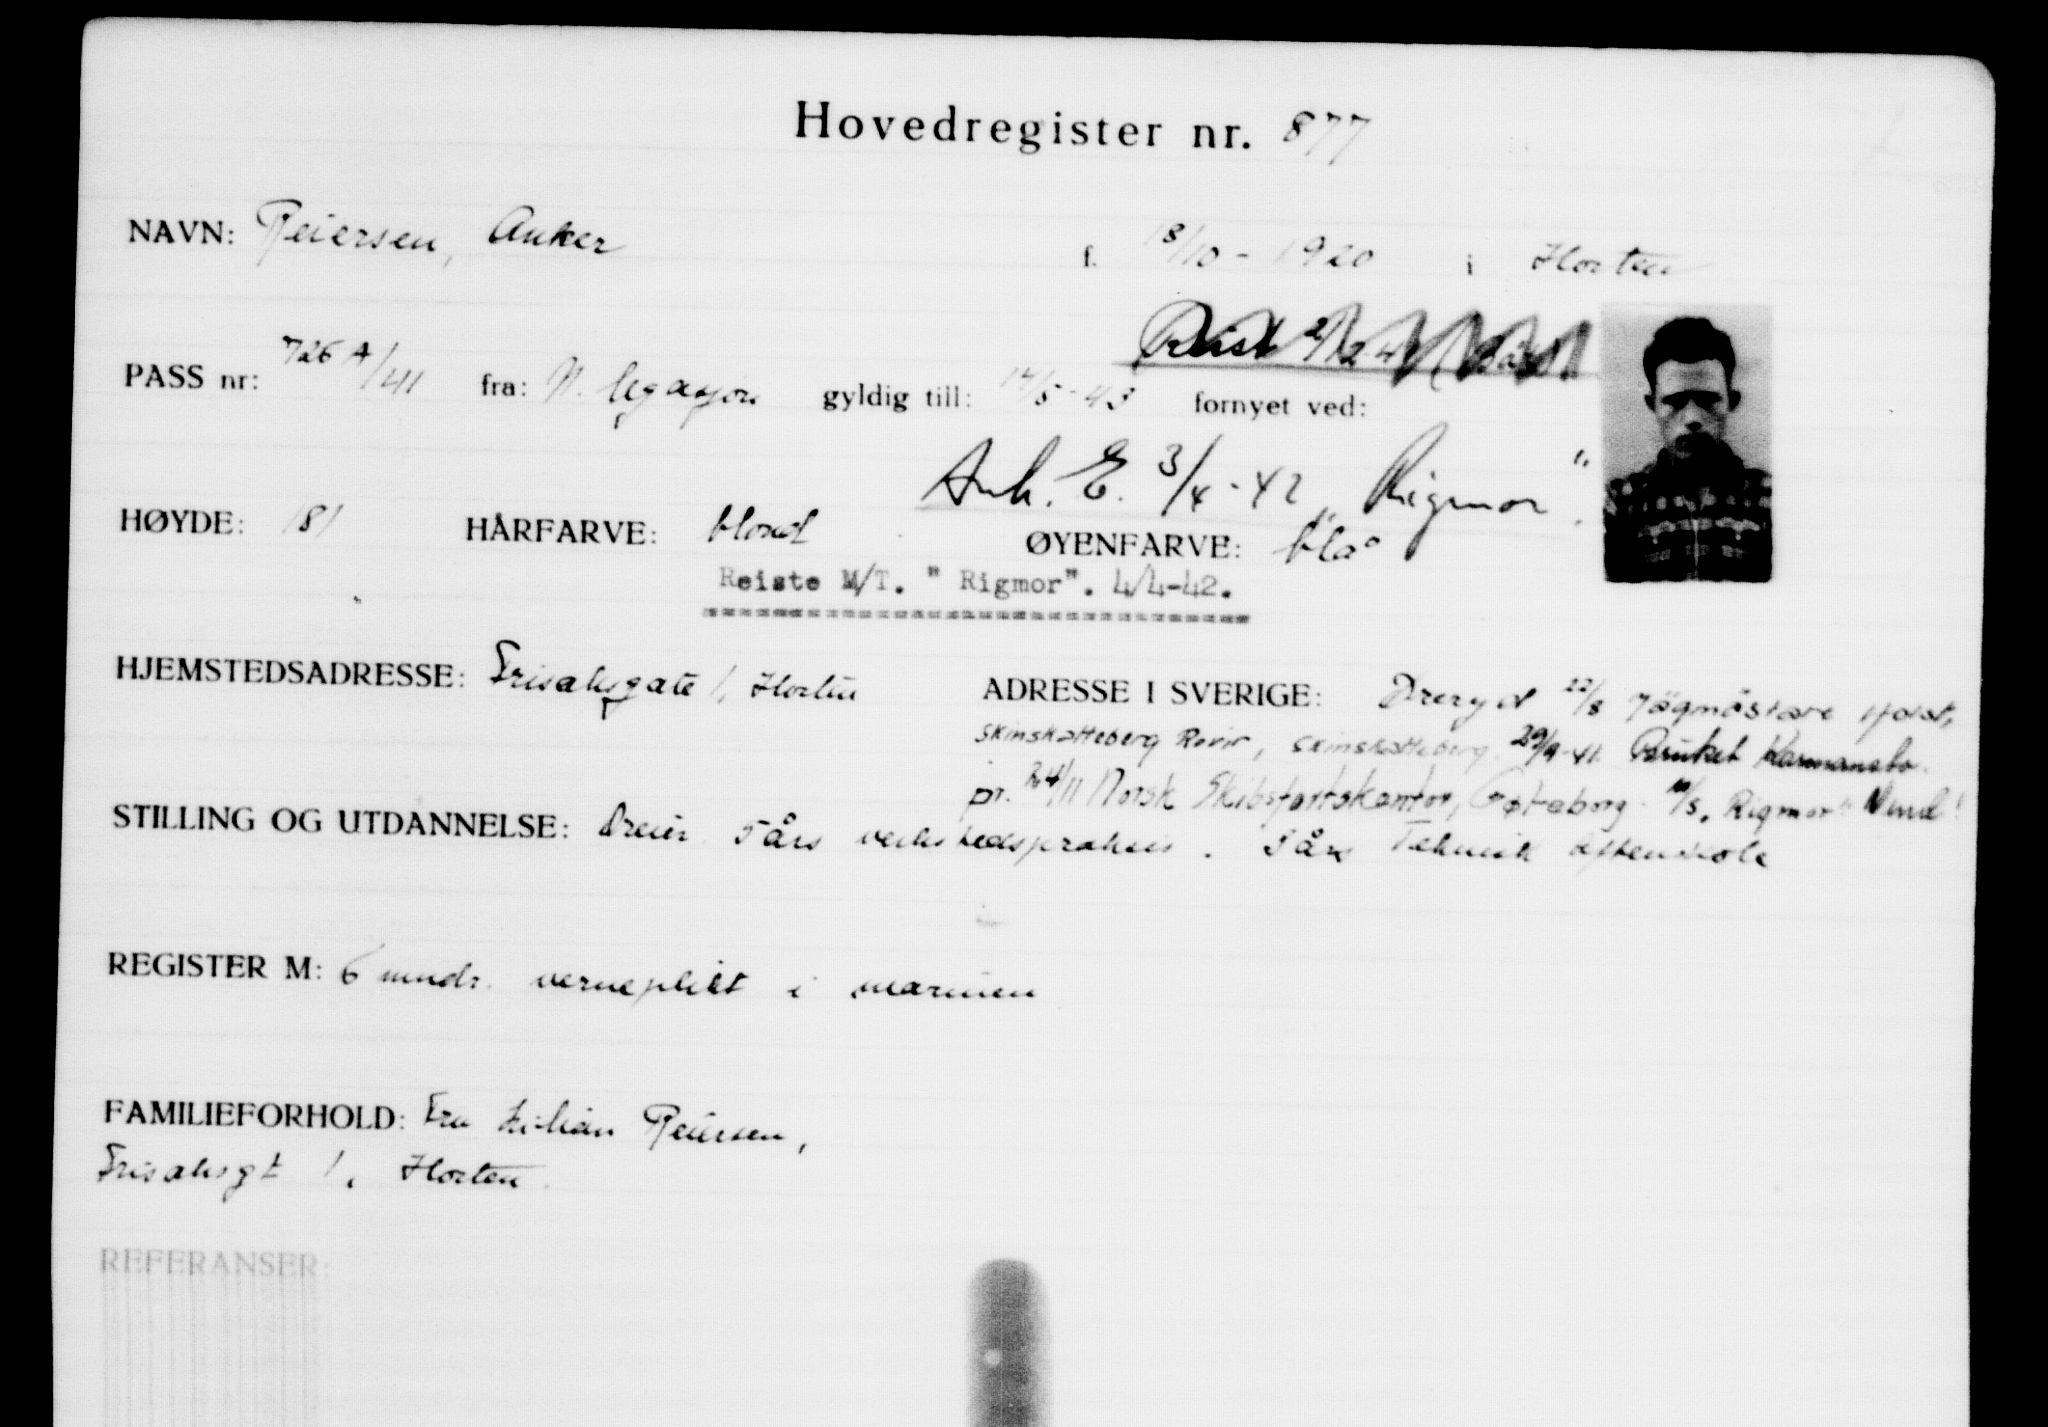 Hovedregister nr. 877
NAVN: Reiersen, Anker f. 18/10 - 1920 i Horten
Reist
PASS nr: 726 A/41 fra: N. legasjon gyldig till: 14/5-43 fornyet ved:
Ank. E. 3/4-42 „Rigmor".
HØYDE: 181 HÅRFARVE: blond ØYENFARVE: blå
Reiste M/T. " Rigmor". 4/4-42.
HJEMSTEDSADRESSE: Frisaksgate 1, Horten ADRESSE I SVERIGE: Øreryd 22/8 Jägmästare
Skinskatteberg Revir, Skinskatteberg. 29/9-41. Bruket Karmansbo.
pr. 24/11 Norsk Skibsfartskontor, Gøteborg. „Rigmor"
STILLING OG UTDANNELSE: Dreier 5 års verkstedspraksis. 3 års Teknisk aftenskole
REGISTER M: 6 mndr. verneplikt i marinen
FAMILIEFORHOLD: Fru Lilian Reiersen,
Frisaksgt 1, Horten.
REFERANSER: